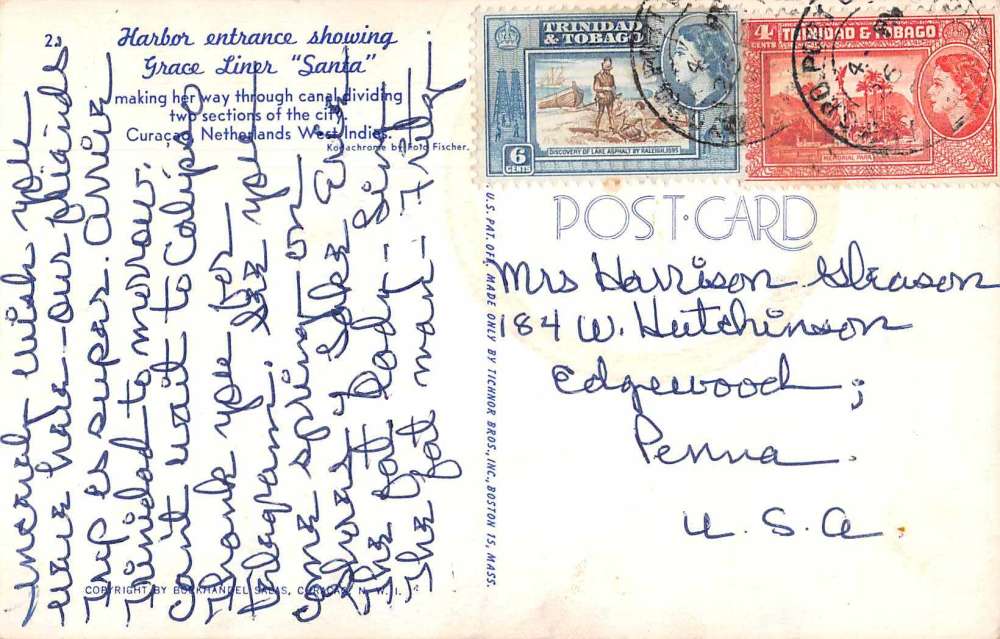 2.
Harbor entrance showing
Grace Liner "Santa"
making her way through canal dividing
two sections of the city.
Curaçao, Netherlands West Indies.
Kodachrome by Foto Fischer.
Sincerely wish you
were here - our friends
Trip is super. Arrive
Trinidad tomorrow.
Cant wait to Calypso
Thank you for
telegram. See you
come spring on
Shores of Lake Erie
The fat lady - Sint
The fat man - Fritz
COPYRIGHT BY BOEKHANDEL SALAS, CURACAO, N. W. I.
U.S. PAT. OFF. MADE ONLY BY TICHNOR BROS., INC., BOSTON 15, MASS.
TRINIDAD
& TOBAGO
6
CENTS
DISCOVERY OF LAKE ASPHALT BY RALEIGH, 1595
4
CENTS
TRINIDAD & TOBAGO
MEMORIAL PARK
POST-CARD
Mrs Harrison Gleason
184 W. Hutchinson
Edgewood;
Penna.
U.S.A.